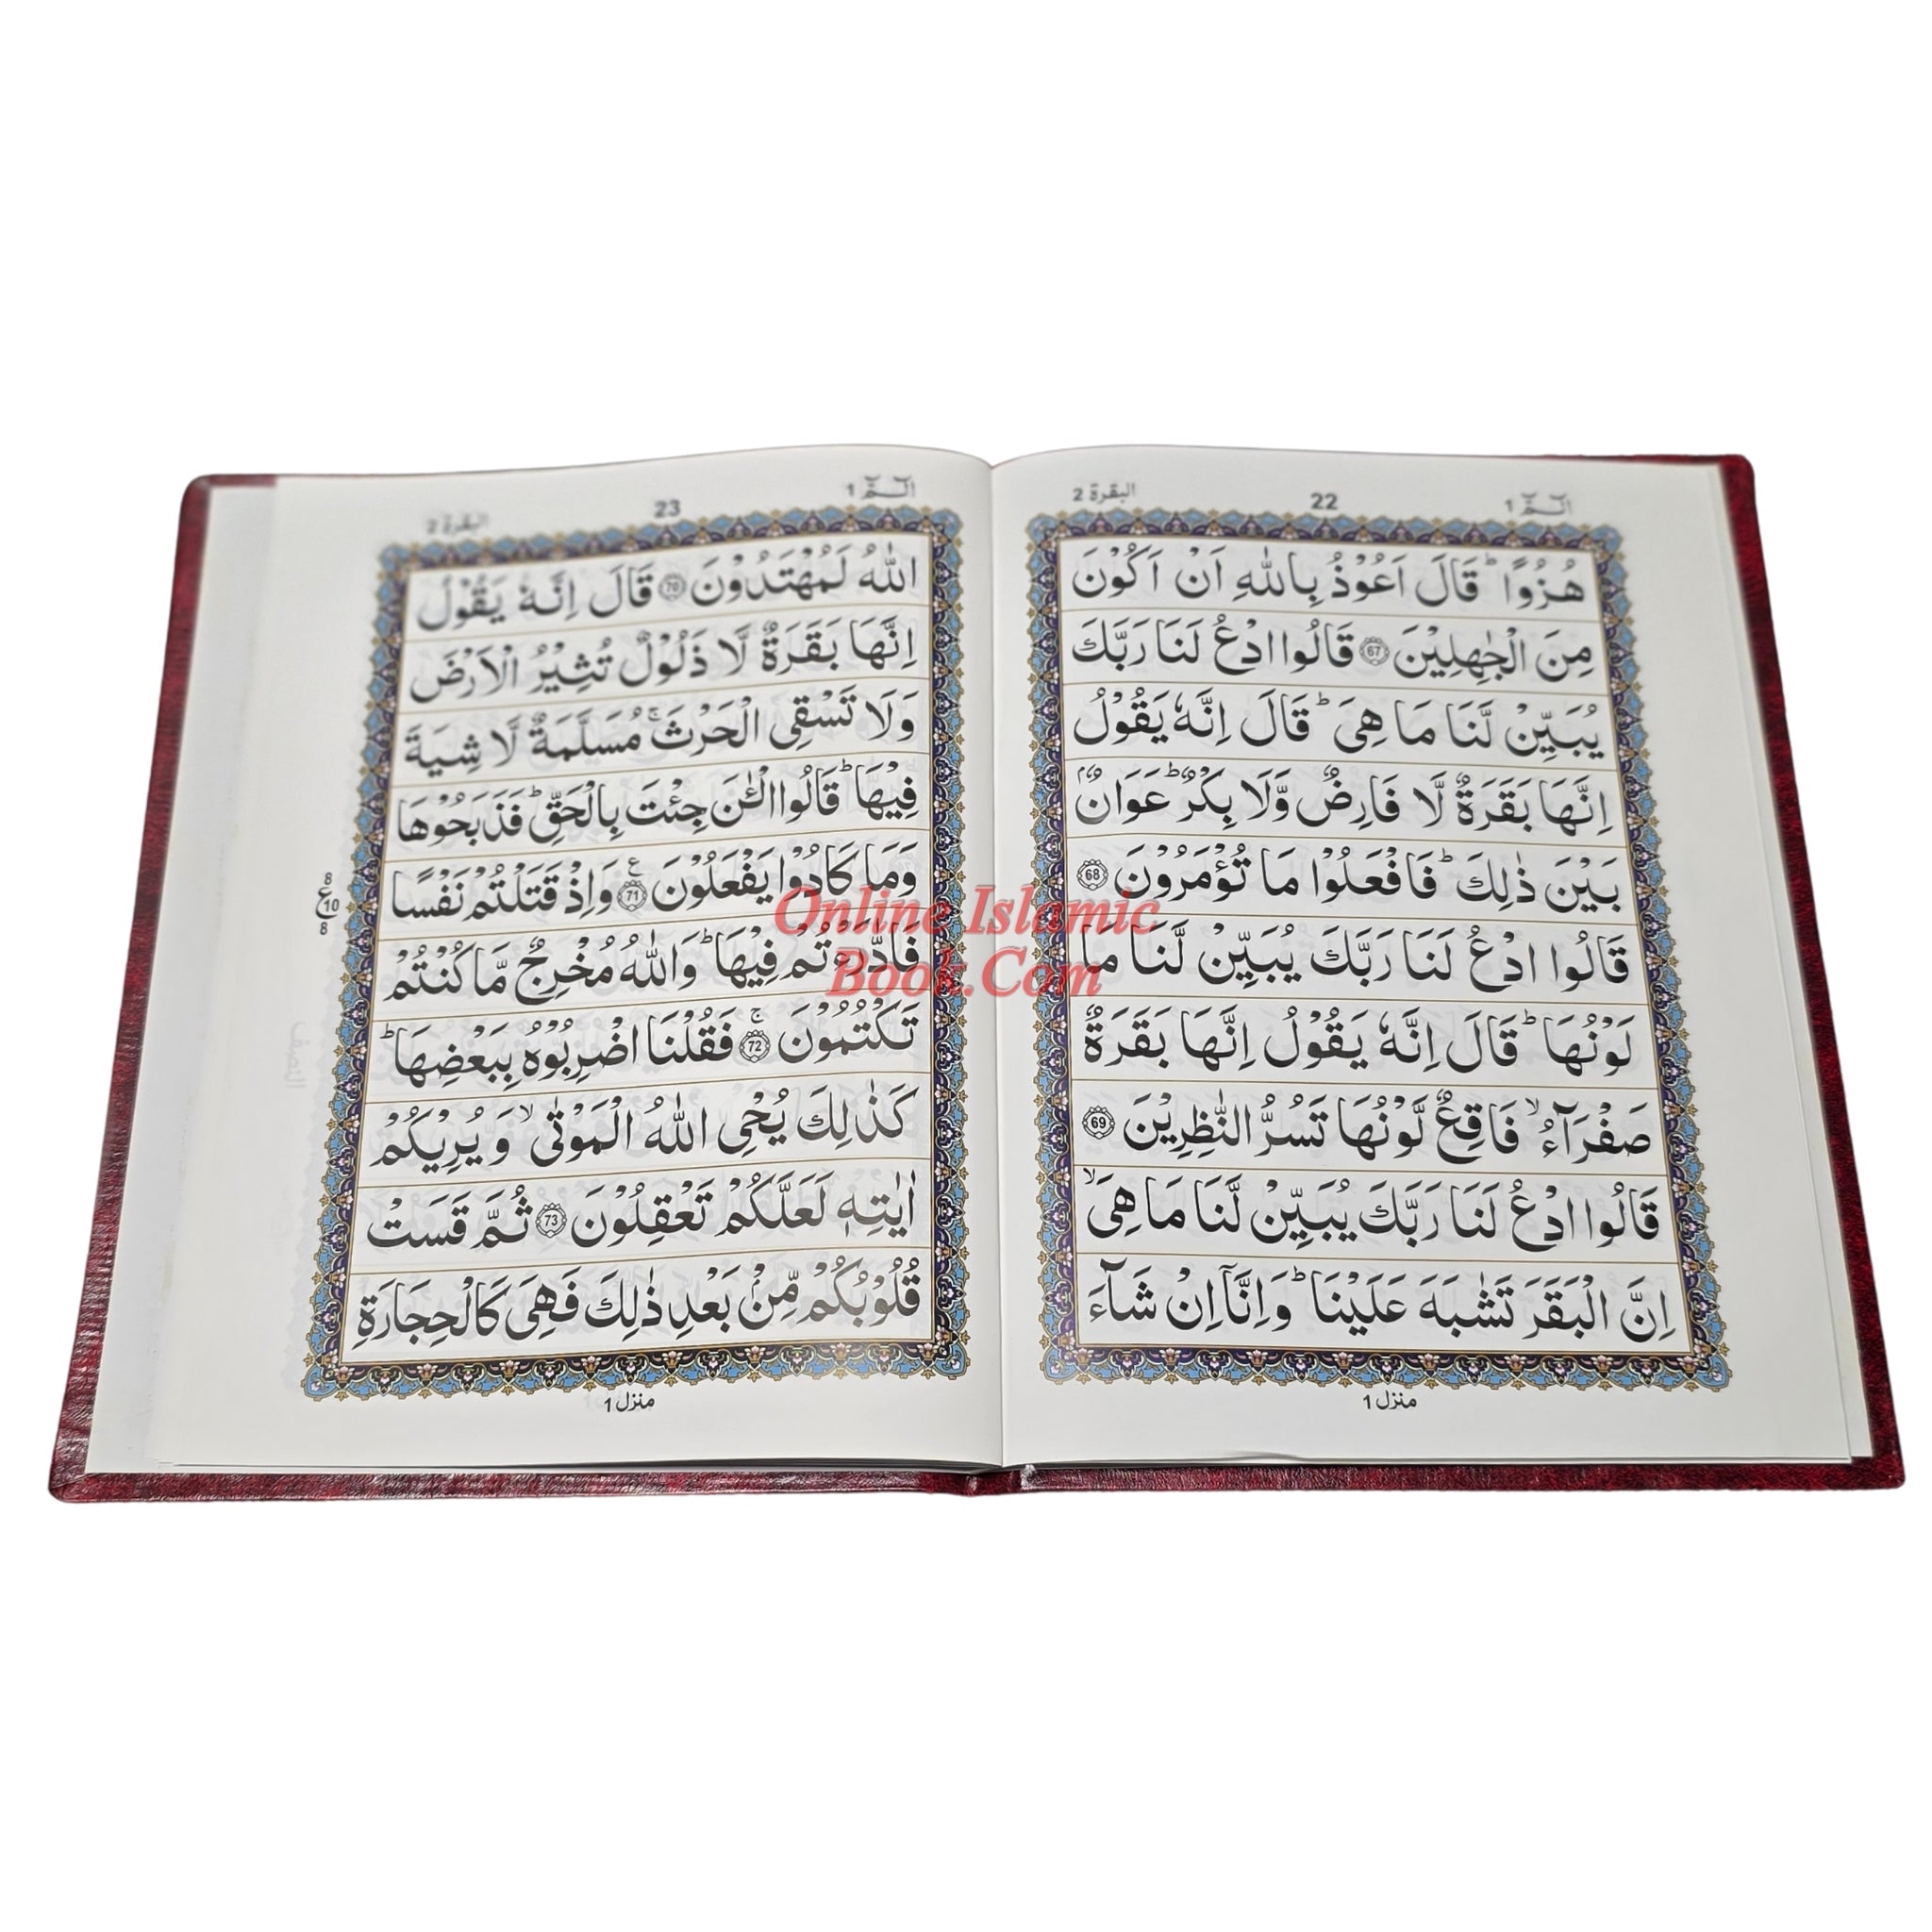 الٓمّٓ 1
22
البقرة 2
هُزُوًا ؕ قَالَ اَعُوْذُ بِاللّٰهِ اَنْ اَكُوْنَ
مِنَ الْجٰهِلِيْنَ 67 قَالُوا ادْعُ لَنَا رَبَّكَ
يُبَيِّنْ لَّنَا مَا هِىَ ؕ قَالَ اِنَّهٗ يَقُوْلُ
اِنَّهَا بَقَرَةٌ لَّا فَارِضٌ وَّلَا بِكْرٌ ؕ عَوَانٌۢ
بَيْنَ ذٰلِكَ ؕ فَافْعَلُوْا مَا تُؤْمَرُوْنَ 68
قَالُوا ادْعُ لَنَا رَبَّكَ يُبَيِّنْ لَّنَا مَا
لَوْنُهَا ؕ قَالَ اِنَّهٗ يَقُوْلُ اِنَّهَا بَقَرَةٌ
صَفْرَآءُ ۙ فَاقِعٌ لَّوْنُهَا تَسُرُّ النّٰظِرِيْنَ 69
قَالُوا ادْعُ لَنَا رَبَّكَ يُبَيِّنْ لَّنَا مَا هِىَ ۙ
اِنَّ الْبَقَرَ تَشٰبَهَ عَلَيْنَا ؕ وَاِنَّاۤ اِنْ شَآءَ
منزل 1
الٓمّٓ 1
23
البقرة 2
اللّٰهُ لَمُهْتَدُوْنَ 70 قَالَ اِنَّهٗ يَقُوْلُ
اِنَّهَا بَقَرَةٌ لَّا ذَلُوْلٌ تُثِيْرُ الْاَرْضَ
وَلَا تَسْقِى الْحَرْثَ ۚ مُسَلَّمَةٌ لَّا شِيَةَ
فِيْهَا ؕ قَالُوا الْـٰٔنَ جِئْتَ بِالْحَقِّ ؕ فَذَبَحُوْهَا
وَمَا كَادُوْا يَفْعَلُوْنَ ع 71 وَاِذْ قَتَلْتُمْ نَفْسًا
8 ع 10 8
فَادّٰرَءْتُمْ فِيْهَا ؕ وَاللّٰهُ مُخْرِجٌ مَّا كُنْتُمْ
تَكْتُمُوْنَ ۚ 72 فَقُلْنَا اضْرِبُوْهُ بِبَعْضِهَا ؕ
كَذٰلِكَ يُحْىِ اللّٰهُ الْمَوْتٰى ۙ وَيُرِيْكُمْ
اٰيٰتِهٖ لَعَلَّكُمْ تَعْقِلُوْنَ 73 ثُمَّ قَسَتْ
قُلُوْبُكُمْ مِّنْۢ بَعْدِ ذٰلِكَ فَهِىَ كَالْحِجَارَةِ
منزل 1
Online Islamic
Book.Com